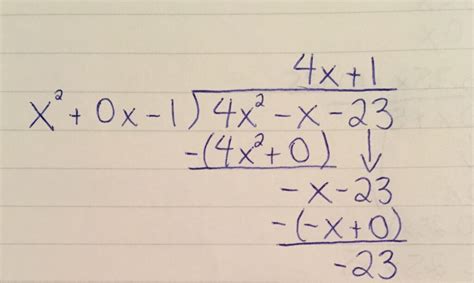 4x+1
x²+0x-1)4x²-x-23
-(4x²+0)↓
-x-23
-(-x+0)
-23